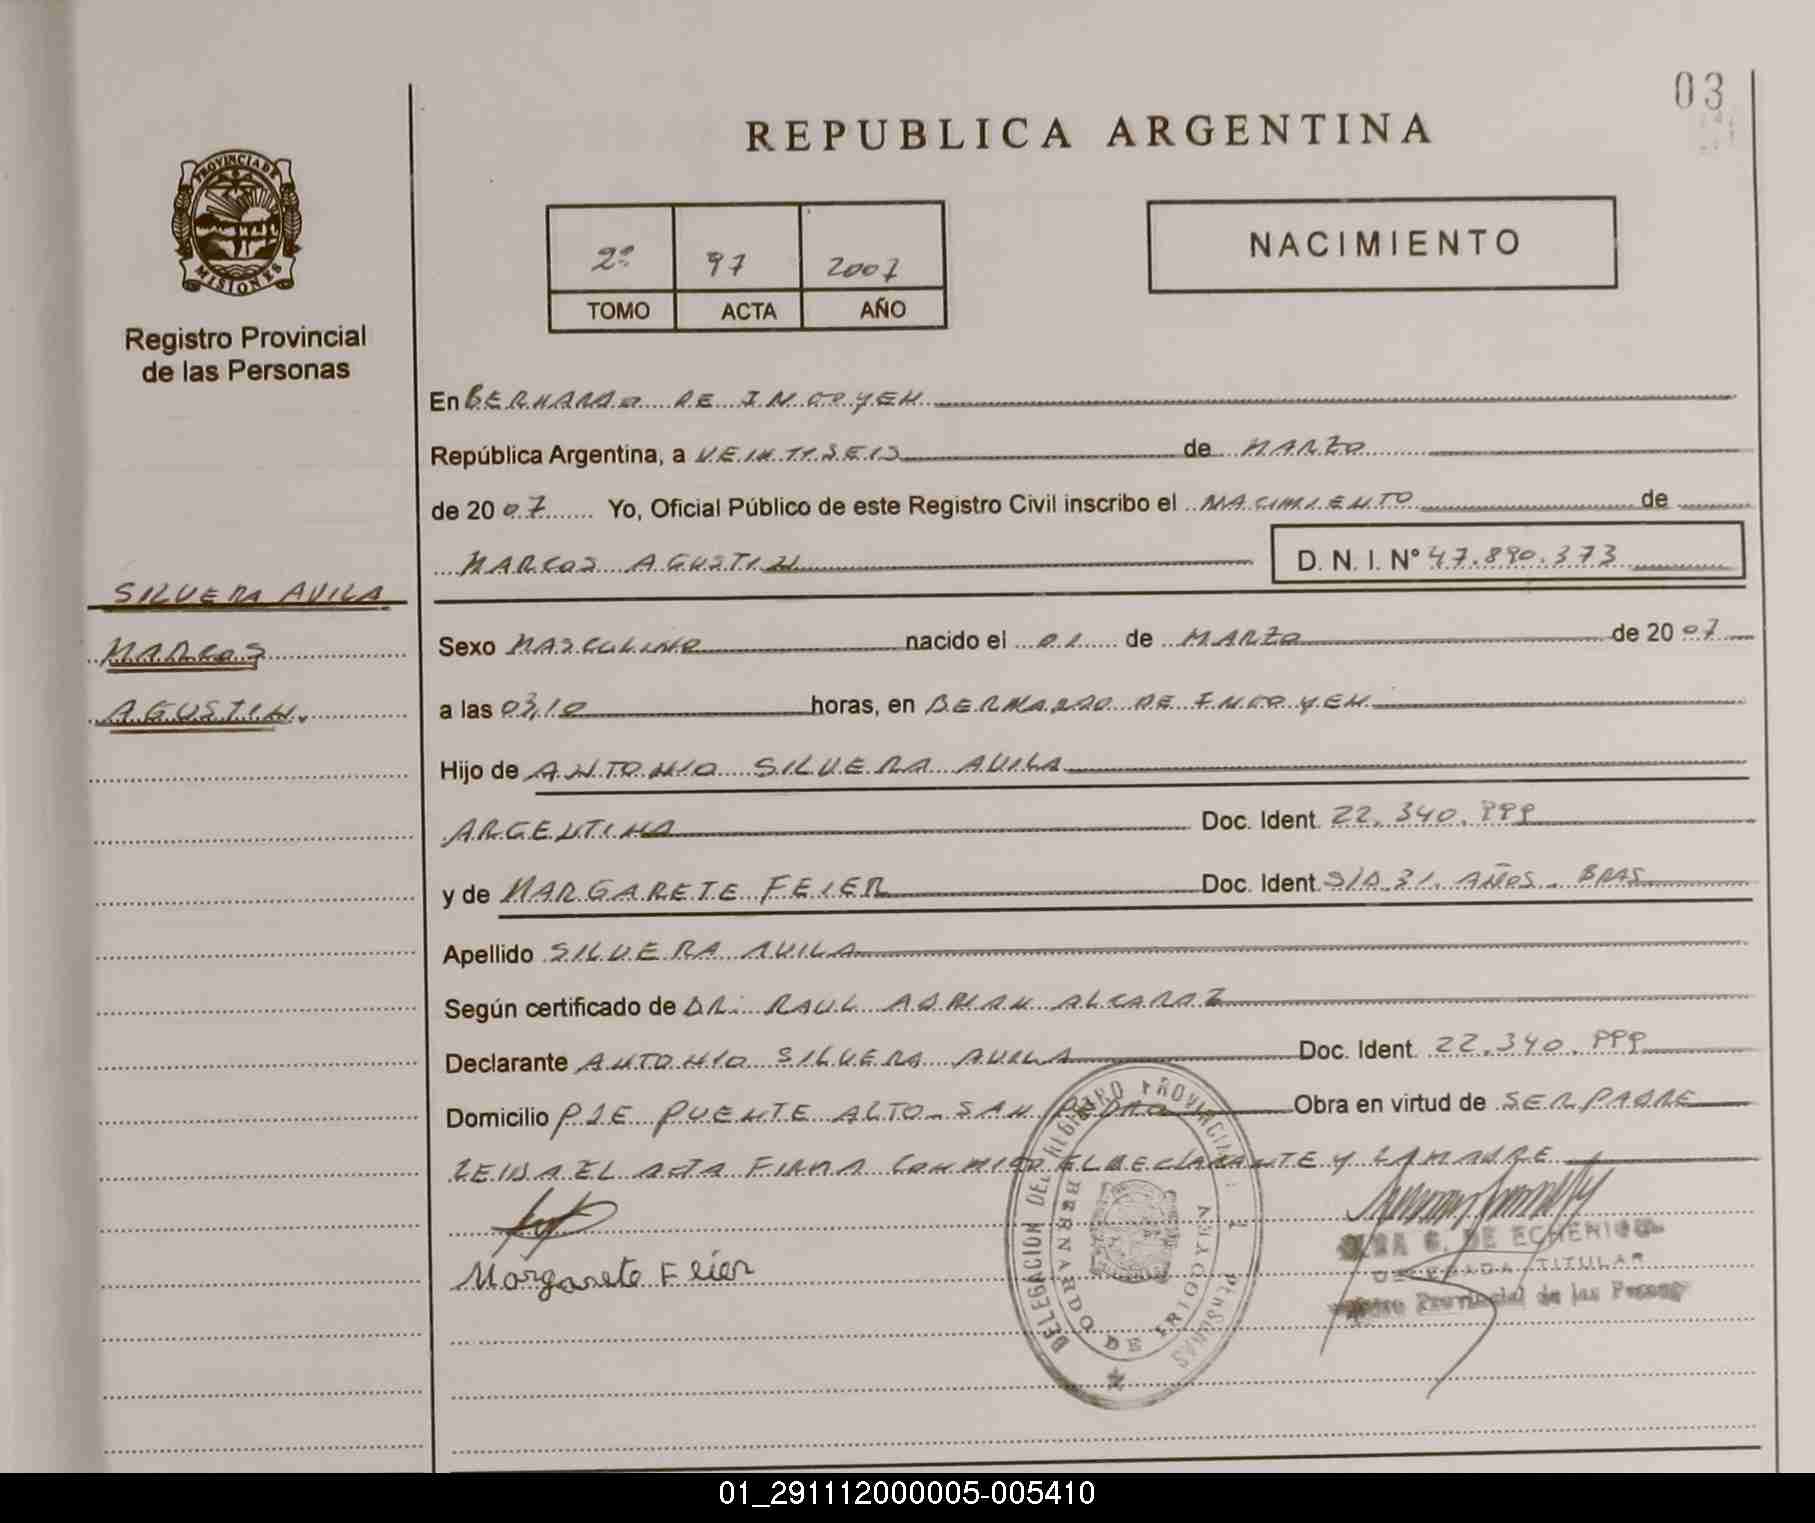 03
REPUBLICA ARGENTINA
PROVINCIA DE
MISIONES
Registro Provincial
de las Personas
2º 97 2007
TOMO ACTA AÑO
NACIMIENTO
En BERNARDO DE IRIGOYEN
República Argentina, a VEINTISEIS de MARZO
de 2007 Yo, Oficial Público de este Registro Civil inscribo el NACIMIENTO de
MARCOS AGUSTIN D. N. I. Nº 47.890.373
SILVERA AVILA
MARCOS
AGUSTIN.
Sexo MASCULINO nacido el 01 de MARZO de 2007
a las 03,10 horas, en BERNARDO DE IRIGOYEN
Hijo de ANTONIO SILVERA AVILA
ARGENTINA Doc. Ident. 22.340.999
y de MARGARETE FEIER Doc. Ident. S/D.31. AÑOS. BRAS
Apellido SILVERA AVILA
Según certificado de DR. RAUL ADRIAN ALCARAZ
Declarante ANTONIO SILVERA AVILA Doc. Ident. 22.340.999
Domicilio PJE PUENTE ALTO-SAN PEDRO Obra en virtud de SER PADRE
LEIDA EL ACTA FIRMA CONMIGO EL DECLARANTE Y LA MADRE
Margarete Feier
DELEGACION DEL REGISTRO PROVINCIAL PERSONAS
BERNARDO DE IRIGOYEN
G. DE ECHENIQUE
DELEGADA TITULAR
Registro Provincial de las Personas
01_291112000005-005410